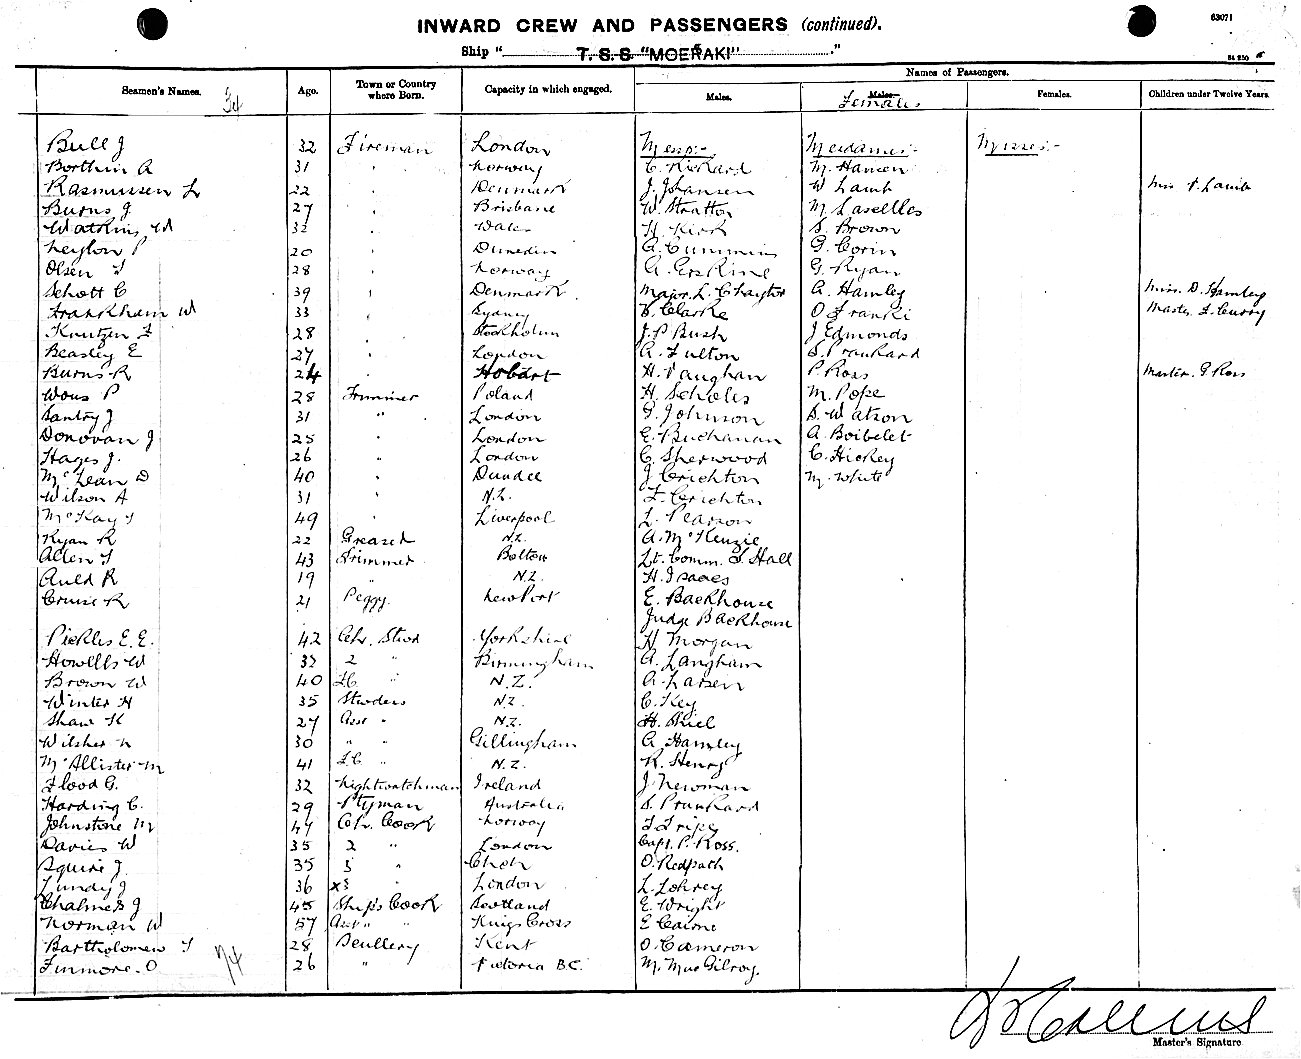 63071
INWARD CREW AND PASSENGERS (continued).
Ship " T. S. S. "MOERAKI" "
Names of Passengers.
Seamen's Names. Age. Town or Country where Born. Capacity in which engaged. Males. Males. Females Females. Children under Twelve Years.
34
Bull J 32 Fireman London Messrs:- Mesdames:- Misses:-
Borthin A 31 " Norway C. Rickard M. Hansen
Rasmussen L 22 " Denmark J. Johansen W Lamb Miss P. Lamb
Burns J. 27 " Brisbane W. Stratton M Laselles
Watkins W 32 " Wales H. Kirk S. Brown
Leylon P 20 " Dunedin A. Cummins G. Corin
Olsen T 28 " Norway A. Erskine G. Ryan
Schott C 39 " Denmark Major. L. Chaytor A. Hamley Miss. D. Hamley
Frankham W 33 " Sydney Clarke O Franki Master. F. Curry
Knutzen F 28 " Stockholm J. P Bush J Edmonds
Beasley E 27 " London A. Fulton S. Prankard
Burns R 24 " Hobart H. Vaughan P Ross Master. G Ross
Wous P 28 Trimmer Poland H. Scholes M. Pope
Santry J 31 " London G. Johnson S. Watson
Donovan J 25 " London E. Buchanan A Boibelet
Hayes J. 26 " London C. Sherwood C. Hickey
McLean D 40 " Dundee J Crichton M. White
Wilson A 31 " N.Z. F. Crichton
McKay T 49 " Liverpool L. Pearson
Ryan R 22 Greaser N.Z. A. McKenzie
Allen T 43 Trimmer Bolton Lt. Comm. S. Hall
Auld R 19 " N.Z. H. Isaacs
Cruise R 21 Peggy. Newport E. Backhouse
Judge Backhouse
Pickles E. E. 42 Chr. Stwd Yorkshire H Morgan
Howells W 33 2 " Birmingham A. Langham
Brown W 40 F.C. " N.Z. A. Larsen
Winter H 35 Stwdess N.Z. C. Key
Shaw K 27 Asst " N.Z. H. Shiel
Wilsher N 30 " " Gillingham A. Hamley
McAllister M 41 F.C. " N.Z. R. Henry
Flood G. 32 Nightwatchman Ireland J. Newman
Harding C. 29 Ptyman Australia S. Prankard
Johnstone M 44 Chr. Cook Norway
Davies W 35 2 " London Capt. P. Ross.
Squire J. 35 3 " O. Redpath
Lundy J 36 x3 " London L. Lohrey
Chalmers J 45 Ship's Cook Scotland E. Wright
Norman W 57 Asst " " Kings Cross E Cairne
Bartholomew T 28 Scullery Kent O. Cameron
Finmore. O 26 " Victoria B.C. M. MacGilroy.
74
Master's Signature